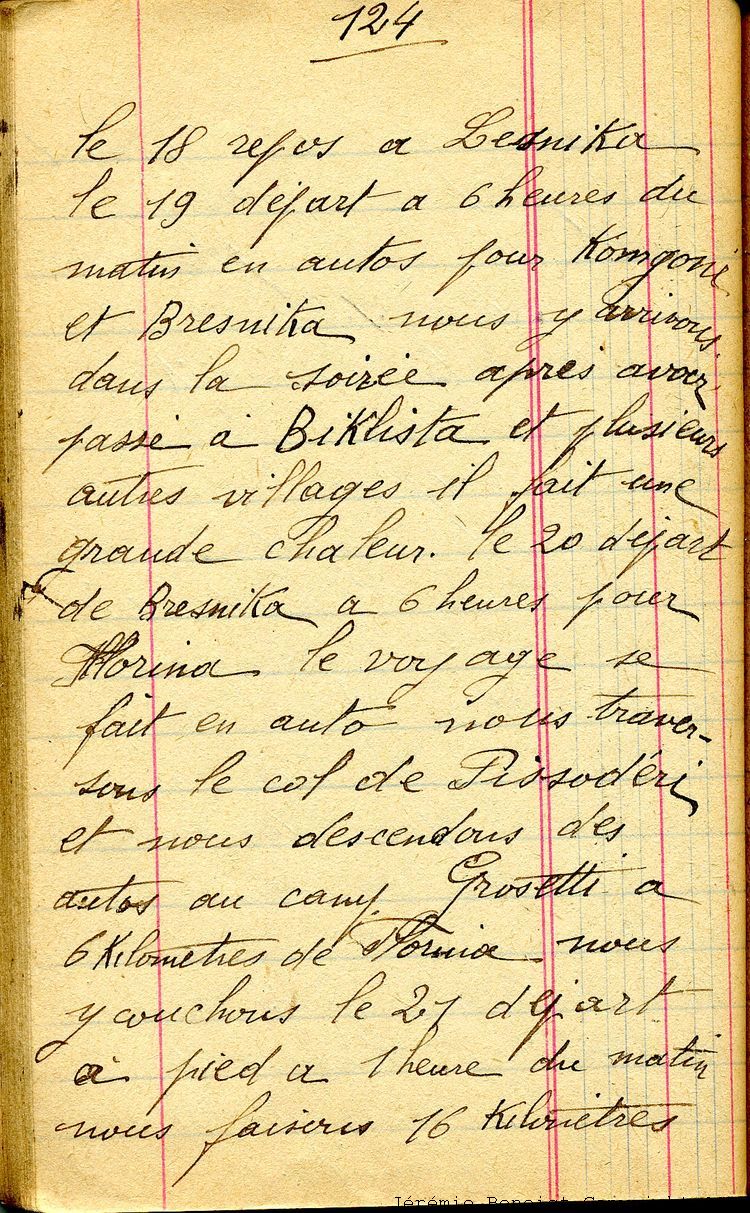 124
le 18 repos a Lesnika
le 19 départ a 6 heures du
matin en autos pour Komgoni
et Bresnika nous y arrivons
dans la soirée aprés avoir
passé a Biklista et plusieurs
autres villages il fait une
grande chaleur. le 20 départ
de Bresnika a 6 heures pour
Florina le voyage se
fait en auto nous traver-
sons le col de Pissodéri
et nous descendons des
autos au camp Grosetti a
6 Kilometres de Florina nous
y couchons le 21 départ
a pied a 1 heure du matin
nous faisons 16 Kilométres